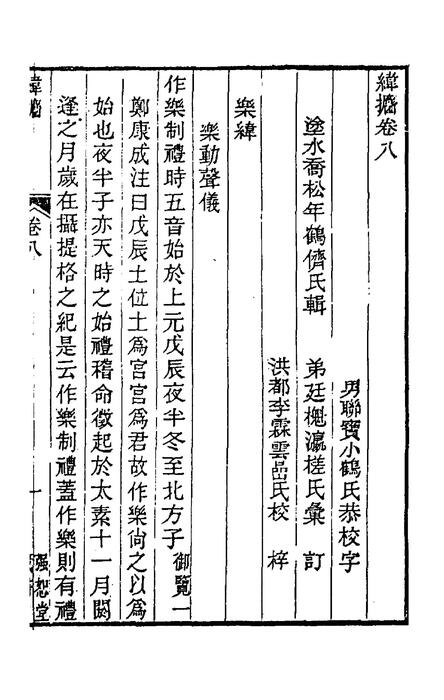 緯攟卷八
塗水喬松年鶴儕氏輯
男聯寶小鶴氏恭校字
弟廷櫆瀛槎氏彙 訂
洪都李霖雲嵒氏校 梓
樂緯
樂動聲儀
作樂制禮時五音始於上元戊辰夜半冬至北方子御覽一
鄭康成注曰戊辰土位土為宮宮為君故作樂尚之以為
始也夜半子亦天時之始禮稽命徵起於太素十一月閼
逢之月歲在攝提格之紀是云作樂制禮蓋作樂則有禮
緯攟
卷八
一
强恕堂